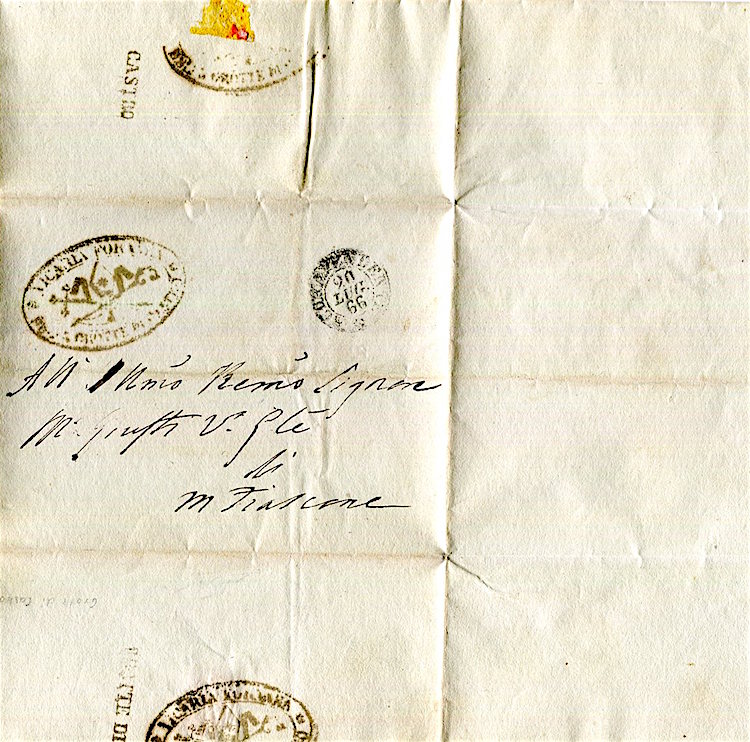 CASTRO
GROTTE DI
VICARIA FORANEA
GROTTE DI CASTRO
20
LUG
66
All' Illmo Remo Signore
Vo. Gle
di
M Fiascone
Grotte di Castro
GROTTE DI
VICARIA FORANEA